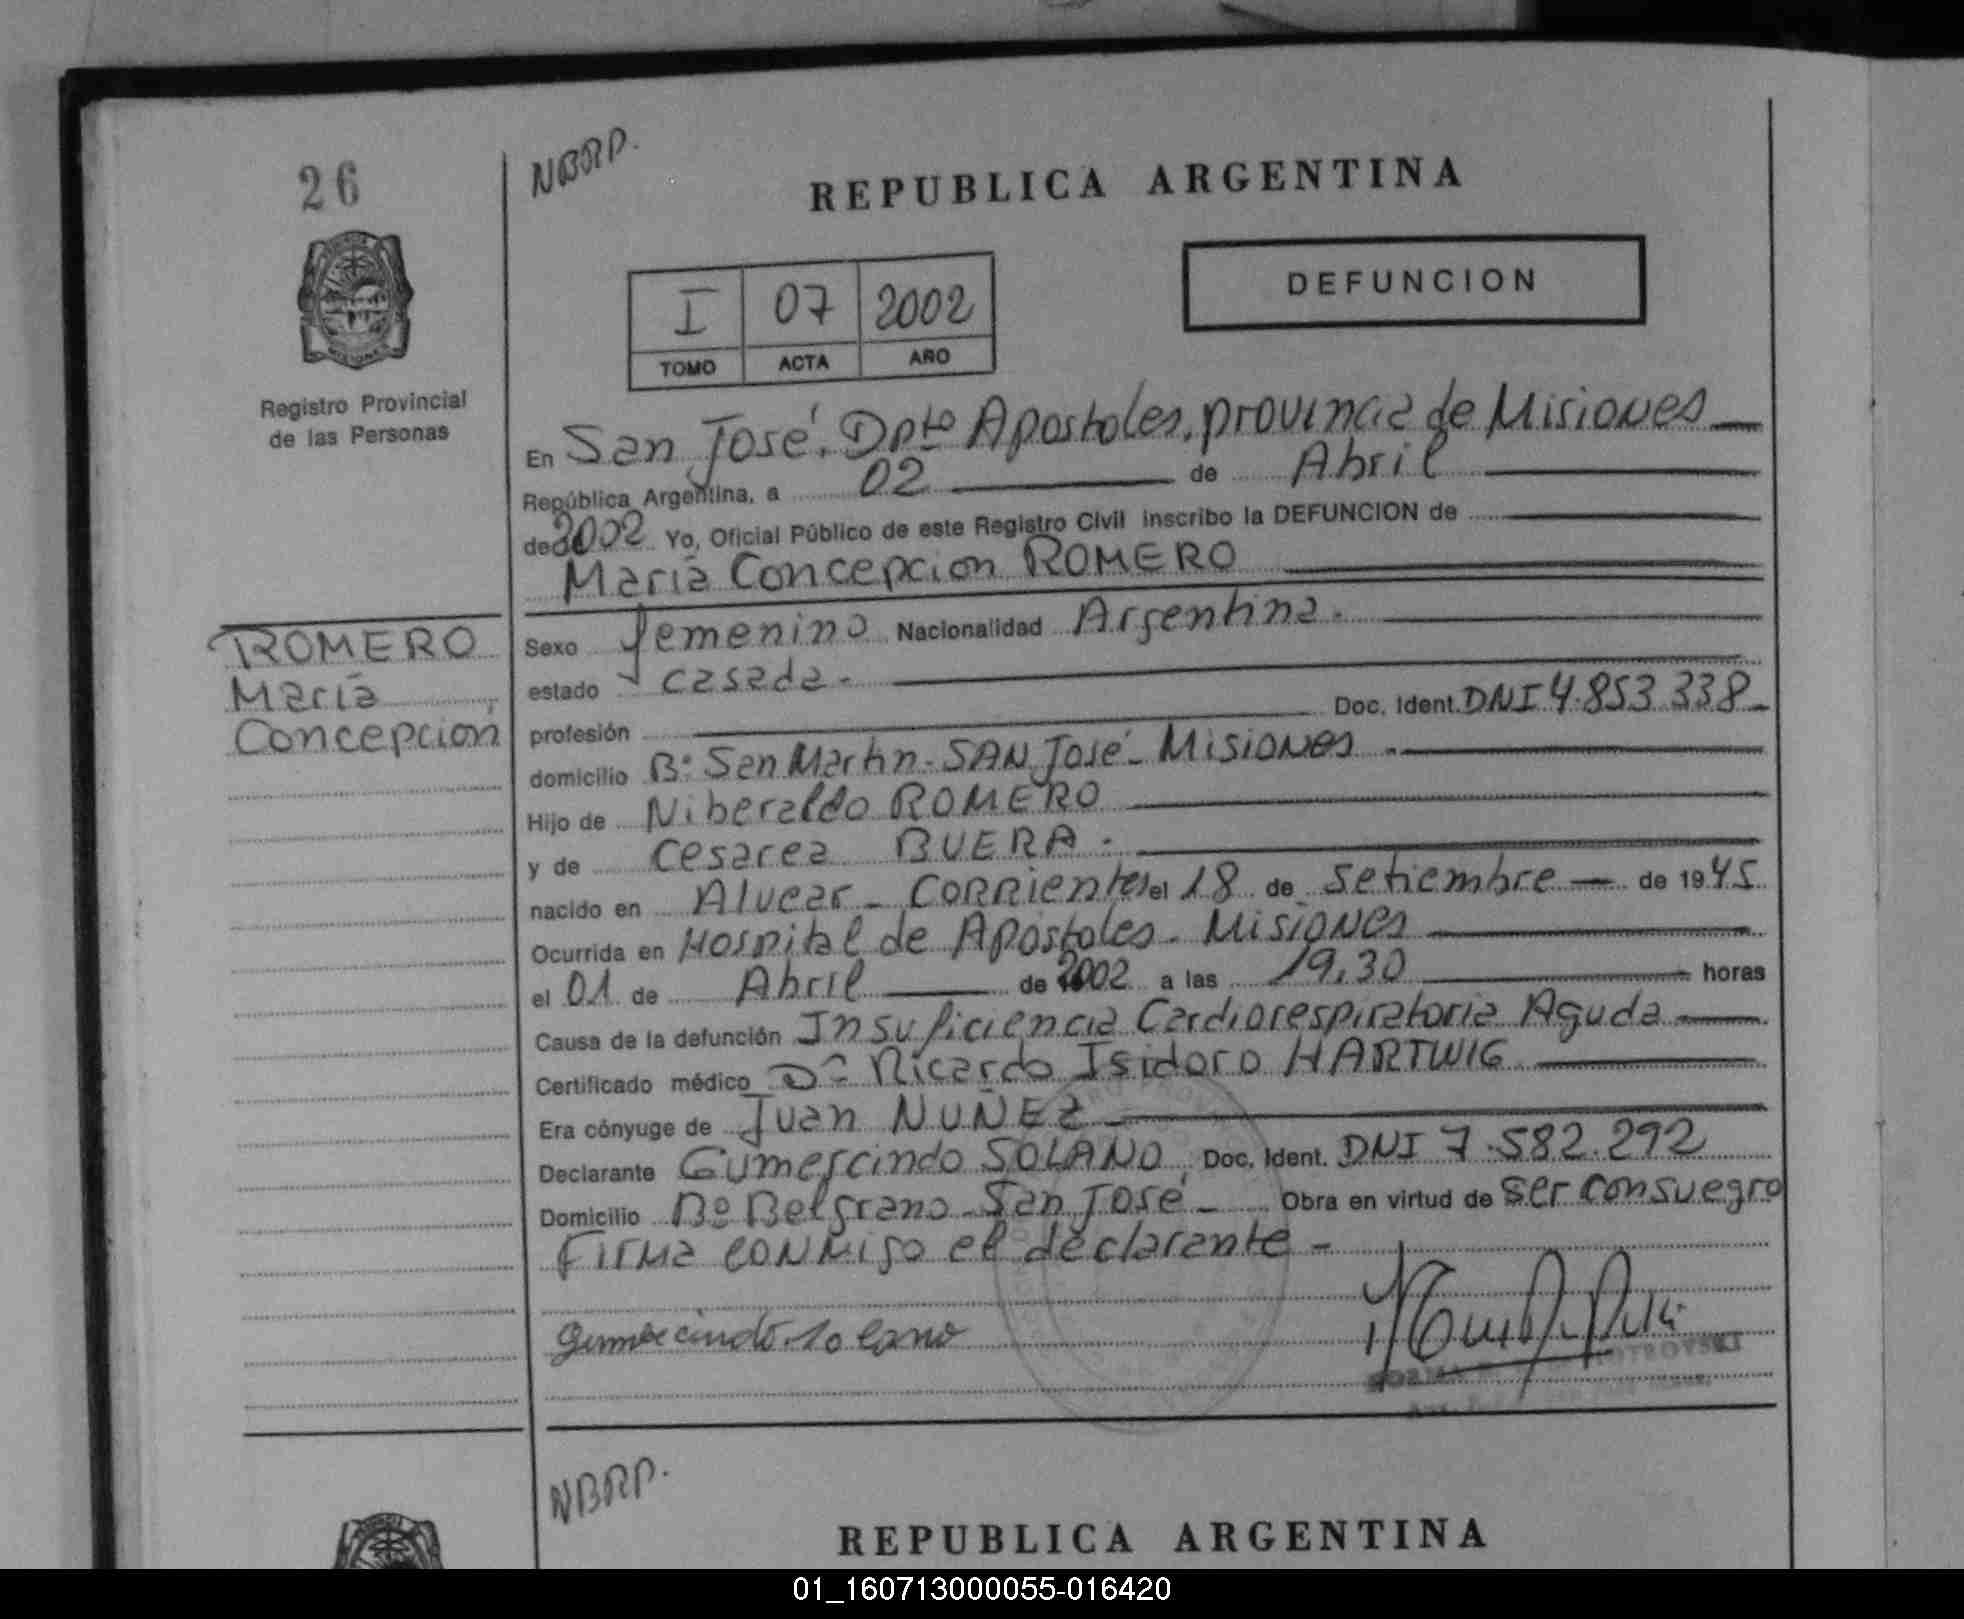 26
NBRP.
REPUBLICA ARGENTINA
DEFUNCION
I 07 2002
TOMO ACTA AÑO
Registro Provincial
de las Personas
En San José, Dpto Apostoles, provincia de Misiones
República Argentina, a 02 de Abril
de 2002 Yo, Oficial Público de este Registro Civil inscribo la DEFUNCION de
María Concepcion ROMERO
ROMERO
María
Concepción
Sexo femenino Nacionalidad Argentina.
estado casada.
profesión Doc. Ident. DNI 4.853.338
domicilio Bº San Martin - SAN José - Misiones
Hijo de Niberaldo ROMERO
y de Cesarea BUERA.
nacido en Alvear - CORRientes el 18 de Setiembre de 1945
Ocurrida en Hospital de Apóstoles - Misiones
el 01 de Abril de 2002 a las 19,30 horas
Causa de la defunción Insuficiencia Cardiorespiratoria Aguda
Certificado médico Dr Ricardo Isidoro HARTWIG
Era cónyuge de Juan NUÑEZ
Declarante Gumercindo SOLANO Doc. Ident. DNI 7.582.292
Domicilio Bº Belgrano - San José - Obra en virtud de ser consuegro
Firma conmigo el declarante -
Gumercindo Solano
NBRP.
REPUBLICA ARGENTINA
01_160713000055-016420